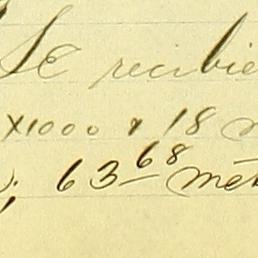 Se recibie
x1000 x 18 m
; 63 68 mét